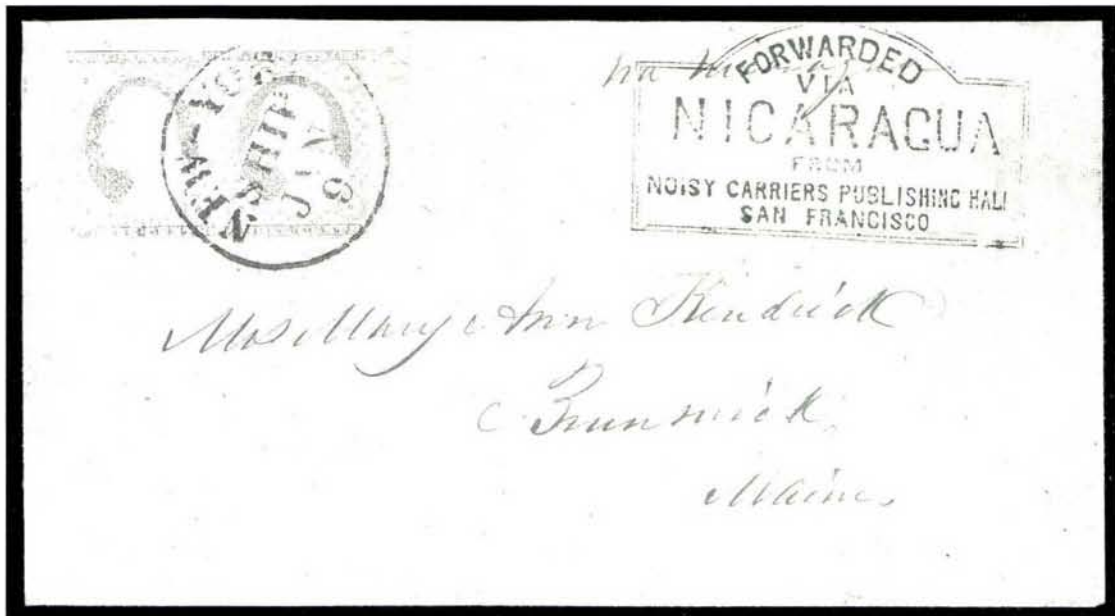 NEW-YORK
SHIP
JAN
9
via Nicaragua
FORWARDED
VIA
NICARAGUA
FROM
NOISY CARRIERS PUBLISHING HALL
SAN FRANCISCO
Mrs Mary Ann Kendrick
Brunswick
Maine